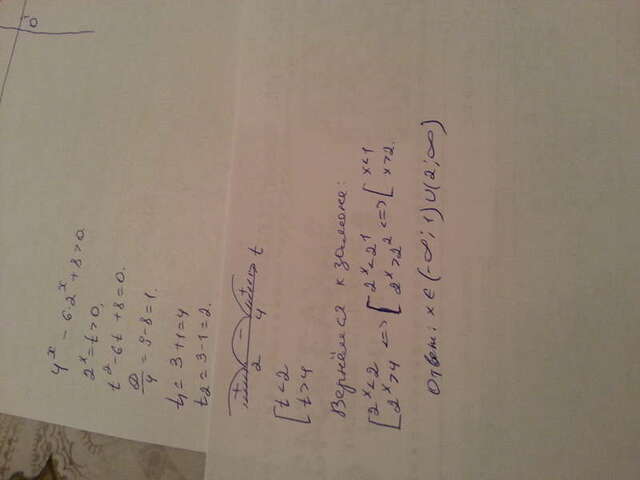 0
4^x - 6·2^x + 8 > 0
2^x = t > 0,
t^2 - 6t + 8 = 0.
D/4 = 9 - 8 = 1.
t1 = 3 + 1 = 4
t2 = 3 - 1 = 2.
+ - + t
2 4
[ t < 2
[ t > 4
Вернёмся к замене:
[ 2^x < 2 <=> [ 2^x < 2^1 <=> [ x < 1
[ 2^x > 4 [ 2^x > 2^2 [ x > 2.
Ответ: x ∈ (-∞; 1) ∪ (2; ∞)